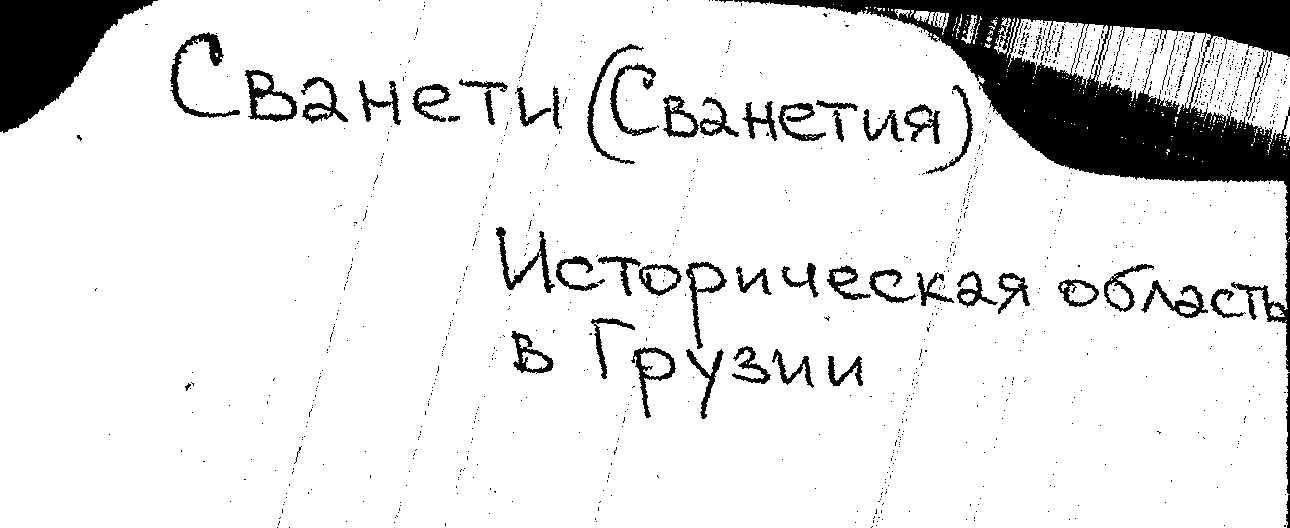 Сванети (Сванетия)
Историческая область
в Грузии